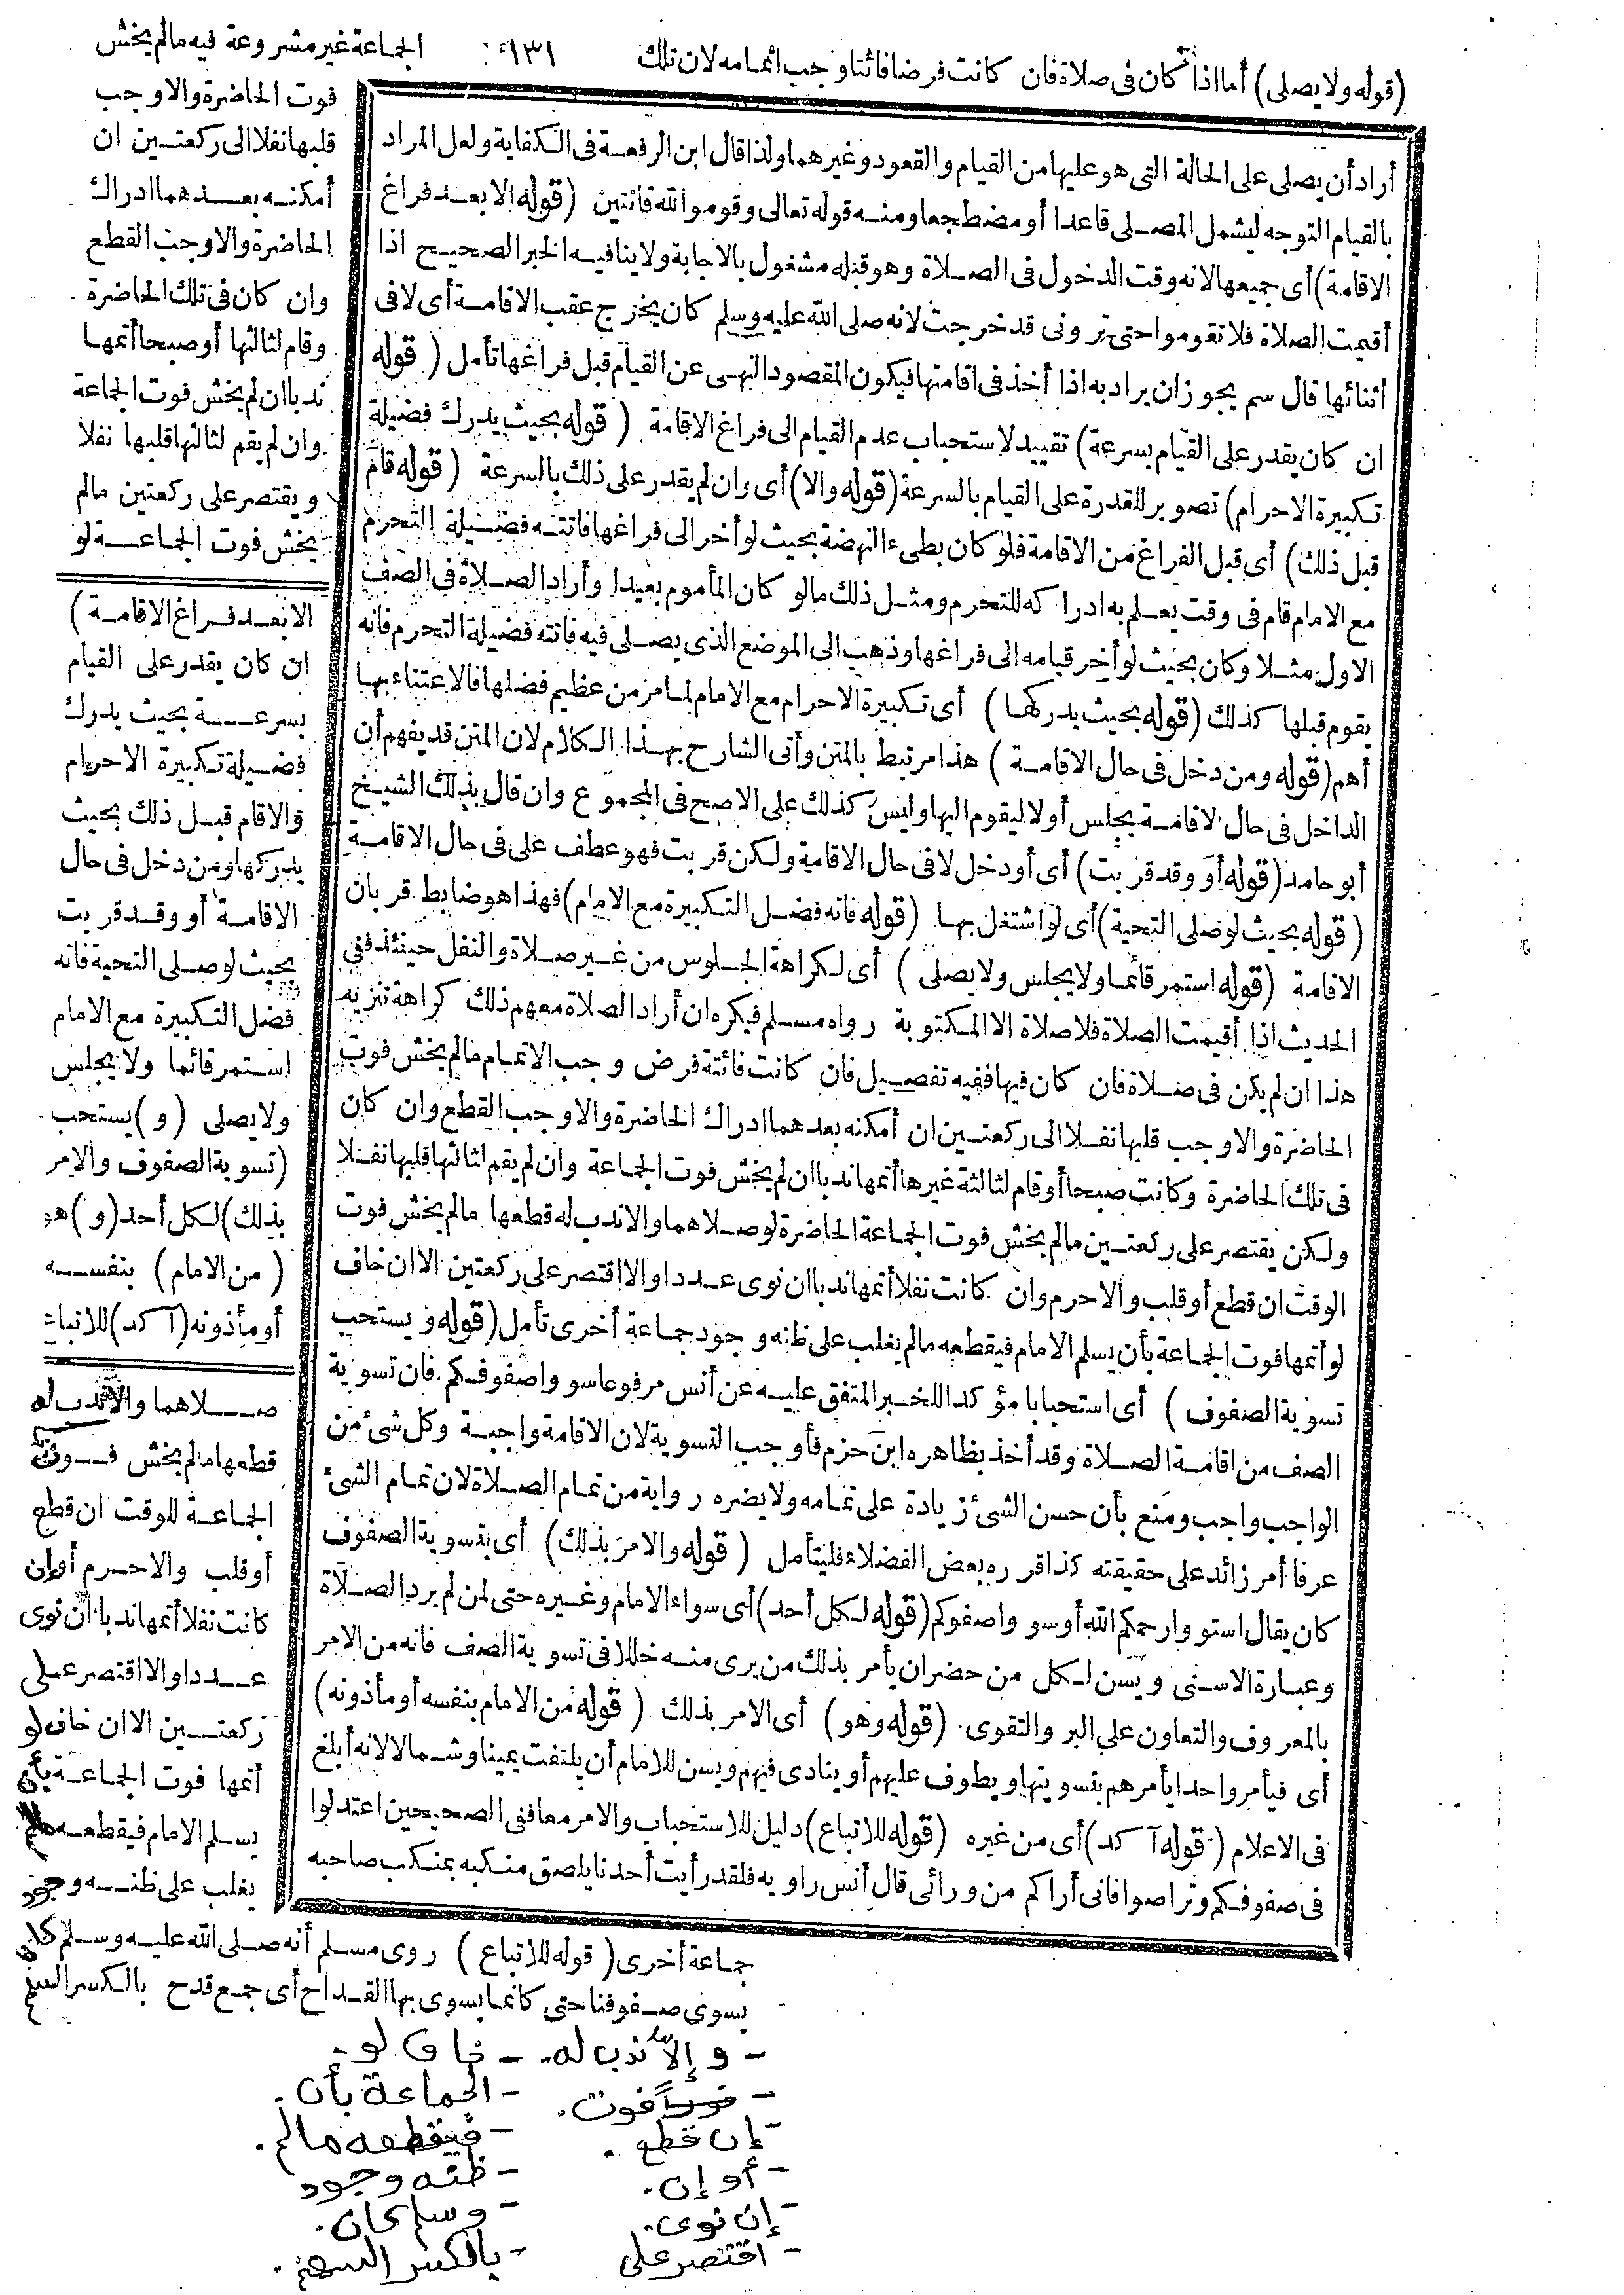 (قوله ولا يصلى) أما اذا كان فى صلاة فان كانت فرضا فائتا وجب اتمامه لان تلك
١٣١
الجماعة غير مشروعة فيه مالم يخش
فوت الحاضرة والا وجب
قلبها نفلا الى ركعتين ان
أمكنه بعدهما ادراك
الحاضرة والا وجب القطع
وان كان فى تلك الحاضرة
وقام لثالثها أو صبحا أتمها
ندبا ان لم يخش فوت الجماعة
وان لم يقم لثالثها قلبها نفلا
ويقتصر على ركعتين مالم
يخش فوت الجماعة لو
أراد أن يصلى على الحالة التى هو عليها من القيام والقعود وغيرهما ولذا قال ابن الرفعة فى الكفاية ولعل المراد
بالقيام التوجه ليشمل المصلى قاعدا أو مضطجعا ومنه قوله تعالى وقوموا لله قانتين (قوله الا بعد فراغ
الاقامة) أى جميعها لانه وقت الدخول فى الصلاة وهو قبله مشغول بالاجابة ولا ينافيه الخبر الصحيح اذا
أقيمت الصلاة فلا تقوموا حتى ترونى قد خرجت لانه صلى الله عليه وسلم كان يخرج عقب الاقامة أى لا فى
أثنائها قال سم يجوز ان يراد به اذا أخذ فى اقامتها فيكون المقصود النهى عن القيام قبل فراغها تأمل (قوله
ان كان يقدر على القيام بسرعة) تقييد لاستحباب عدم القيام الى فراغ الاقامة (قوله بحيث يدرك فضيلة
تكبيرة الاحرام) تصوير للقدرة على القيام بالسرعة (قوله والا) أى وان لم يقدر على ذلك بالسرعة (قوله قام
قبل ذلك) أى قبل الفراغ من الاقامة فلو كان بطىء النهضة بحيث لو أخر الى فراغها فاتته فضيلة التحرم
مع الامام قام فى وقت يعلم به ادراكه للتحرم ومثل ذلك مالو كان المأموم بعيدا وأراد الصلاة فى الصف
الاول مثلا وكان بحيث لو أخر قيامه الى فراغها وذهب الى الموضع الذى يصلى فيه فاتته فضيلة التحرم فانه
يقوم قبلها كذلك (قوله بحيث يدركها) أى تكبيرة الاحرام مع الامام لما مر من عظيم فضلها فالاعتناء بها
أهم (قوله ومن دخل فى حال الاقامة) هذا مرتبط بالمتن وأتى الشارح بهذا الكلام لان المتن قد يفهم أن
الداخل فى حال الاقامة يجلس أولا ليقوم اليها وليس كذلك على الاصح فى المجموع وان قال بذلك الشيخ
أبو حامد (قوله أو وقد قربت) أى أو دخل لا فى حال الاقامة ولكن قربت فهو عطف على فى حال الاقامة
(قوله بحيث لو صلى التحية) أى لو اشتغل بها (قوله فاته فضل التكبيرة مع الامام) فهذا هو ضابط قربان
الاقامة (قوله استمر قائما ولا يجلس ولا يصلى) أى لكراهة الجلوس من غير صلاة والنفل حينئذ ففى
الحديث اذا أقيمت الصلاة فلا صلاة الا المكتوبة رواه مسلم فيكره ان أراد الصلاة معهم ذلك كراهة تنزيه
هذا ان لم يكن فى صلاة فان كان فيها ففيه تفصيل فان كانت فائتة فرض وجب الاتمام مالم يخش فوت
الحاضرة والا وجب قلبها نفلا الى ركعتين ان أمكنه بعدهما ادراك الحاضرة والا وجب القطع وان كان
فى تلك الحاضرة وكانت صبحا أو قام لثالثة غيرها أتمها ندبا ان لم يخش فوت الجماعة وان لم يقم لثالثها قلبها نفلا
ولكن يقتصر على ركعتين مالم يخش فوت الجماعة الحاضرة لو صلاهما والا ندب له قطعها مالم يخش فوت
الوقت ان قطع أو قلب والا حرم وان كانت نفلا أتمها ندبا ان نوى عددا والا اقتصر على ركعتين الا ان خاف
لو أتمها فوت الجماعة بأن يسلم الامام فيقطعه مالم يغلب على ظنه وجود جماعة أخرى تأمل (قوله ويستحب
تسوية الصفوف) أى استحبابا مؤكدا للخبر المتفق عليه عن أنس مرفوعا سووا صفوفكم فان تسوية
الصف من اقامة الصلاة وقد أخذ بظاهره ابن حزم فأوجب التسوية لان الاقامة واجبة وكل شئ من
الواجب واجب ومنع بأن حسن الشئ زيادة على تمامه ولا يضره رواية من تمام الصلاة لان تمام الشئ
عرفا أمر زائد على حقيقته كذا قرره بعض الفضلاء فليتأمل (قوله والامر بذلك) أى بتسوية الصفوف
كان يقال استووا رحمكم الله أو سووا صفوفكم (قوله لكل أحد) أى سواء الامام وغيره حتى لمن لم يرد الصلاة
وعبارة الاسنى ويسن لكل من حضر ان يأمر بذلك من يرى منه خللا فى تسوية الصف فانه من الامر
بالمعروف والتعاون على البر والتقوى (قوله وهو) أى الامر بذلك (قوله من الامام بنفسه أو مأذونه)
أى فيأمر واحدا يأمرهم بتسويتها ويطوف عليهم أو ينادى فيهم ويسن للامام أن يلتفت يمينا وشمالا لانه أبلغ
فى الاعلام (قوله آكد) أى من غيره (قوله للاتباع) دليل للاستحباب والامر معا ففى الصحيحين اعتدلوا
فى صفوفكم وتراصوا فانى أراكم من ورائى قال أنس راويه فلقد رأيت أحدنا يلصق منكبه بمنكب صاحبه
الا بعد فراغ الاقامة)
ان كان يقدر على القيام
بسرعة بحيث يدرك
فضيلة تكبيرة الاحرام
والا قام قبل ذلك بحيث
يدركها ومن دخل فى حال
الاقامة أو وقد قربت
بحيث لو صلى التحية فاته
فضل التكبيرة مع الامام
استمر قائما ولا يجلس
ولا يصلى (و) يستحب
(تسوية الصفوف والامر
بذلك) لكل أحد (و) هو
(من الامام) بنفسه
أو مأذونه (آكد) للاتباع
صلاهما والا ندب له
قطعها مالم يخش فوت
الجماعة للوقت ان قطع
أو قلب والا حرم أو ان
كانت نفلا أتمها ندبا ان نوى
عددا والا اقتصر على
ركعتين الا ان خاف لو
أتمها فوت الجماعة بأن
يسلم الامام فيقطعه مالم
يغلب على ظنه وجود
جماعة أخرى (قوله للاتباع) روى مسلم أنه صلى الله عليه وسلم كان
يسوى صفوفنا حتى كانما يسوى بها القداح أى جمع قدح بالكسر السهم
- وإلا ندب له. - خاف لو.
- فوت. - الجماعة بأن.
- إن قطع. - فيقطعه مالم.
- أو إن. - ظنه وجود
- إن نوى. - وسلم كان.
- اقتصر على - بالكسر السهم.